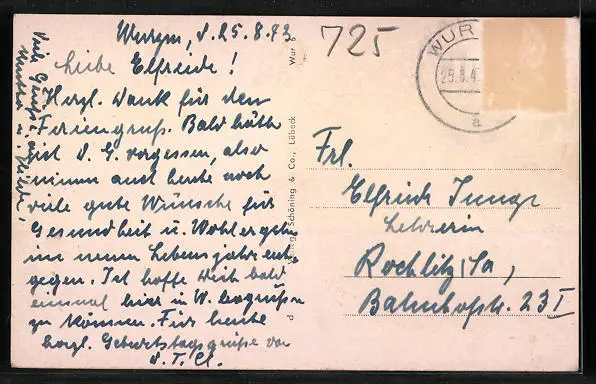 Wurzen, d. 25.8.43.
Liebe Elfriede!
Herzl. Dank für den
Feriengruß. Bald hätte
ich d. G. vergessen, also
nimm auch heute noch
viele gute Wünsche für
Gesundheit u. Wohlergehn
im neuen Lebensjahre ent-
gegen. Ich hoffe dich bald
einmal hier in W. begrüßen
zu können. Für heute
herzl. Geburtstagsgrüße von
d. T. Cl.
Viele Grüße
Mutter u.
725
Wur 6
Verlag Schöning & Co., Lübeck
WUR
25.8.4
a
Frl.
Elfriede Junge
Lehrerin
Rochlitz i/Sa,
Bahnhofstr. 23 I